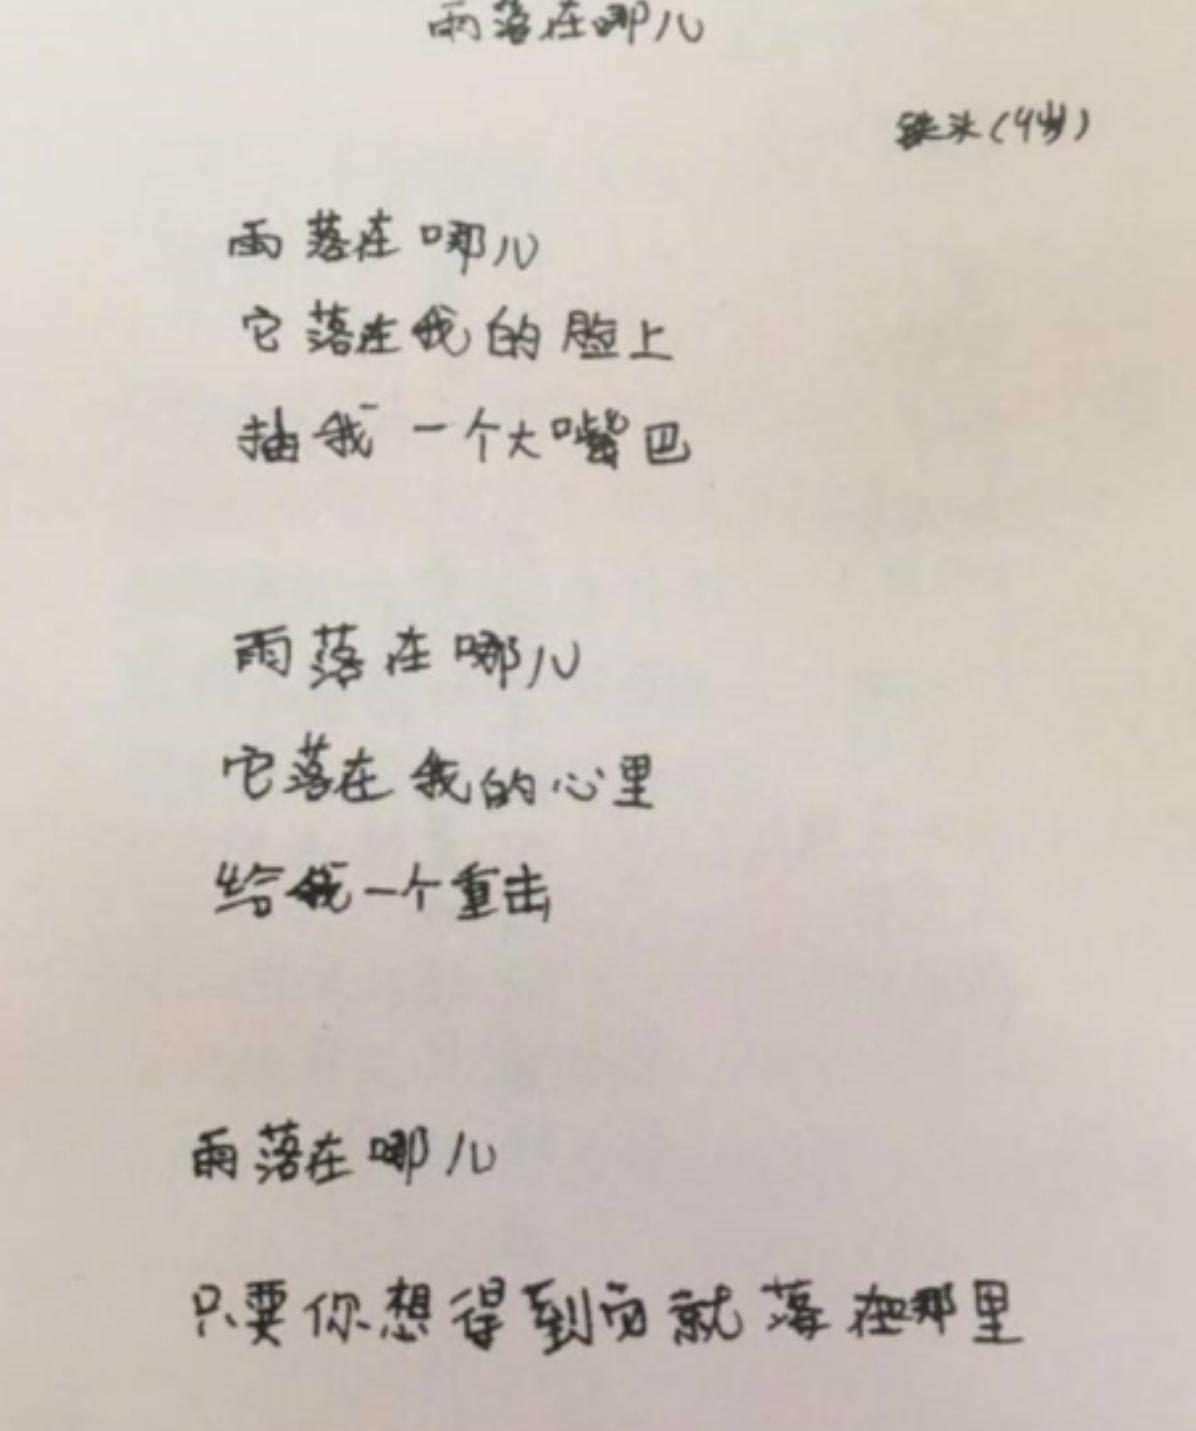 雨落在哪儿
铁头(4岁)
雨落在哪儿
它落在我的脸上
抽我一个大嘴巴
雨落在哪儿
它落在我的心里
给我一个重击
雨落在哪儿
只要你想得到雨就落在哪里